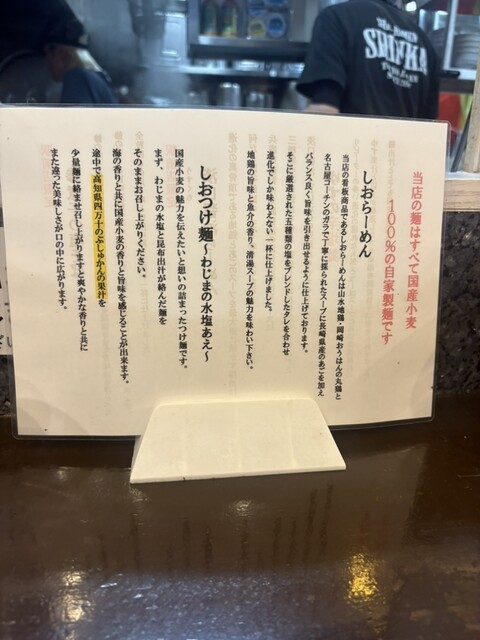 当店の麺はすべて国産小麦
100%の自家製麺です
しおらーめん
当店の看板商品であるしおらーめんは山水地鶏・岡崎おうはんの丸鶏と
名古屋コーチンのガラで丁寧に採られたスープに長崎県産のあごを加え
バランス良く旨味を引き出せるように仕上げております。
そこに厳選された五種類の塩をブレンドしたタレを合わせ
進化でしか味わえない一杯に仕上げました。
地鶏の旨味と魚介の香り、清湯スープの魅力を味わい下さい。
しおつけ麺～わじまの水塩あえ～
国産小麦の魅力を伝えたいと想いの詰まったつけ麺です。
まず、わじまの水塩と昆布出汁が絡んだ麺を
そのままお召し上がりください。
海の香りと共に国産小麦の香りと旨味を感じることが出来ます。
途中で高知県四万十のぶしゅかんの果汁を
少量麺に絡ませ召し上がりますと爽やかな香りと共に
また違った美味しさが口の中に広がります。